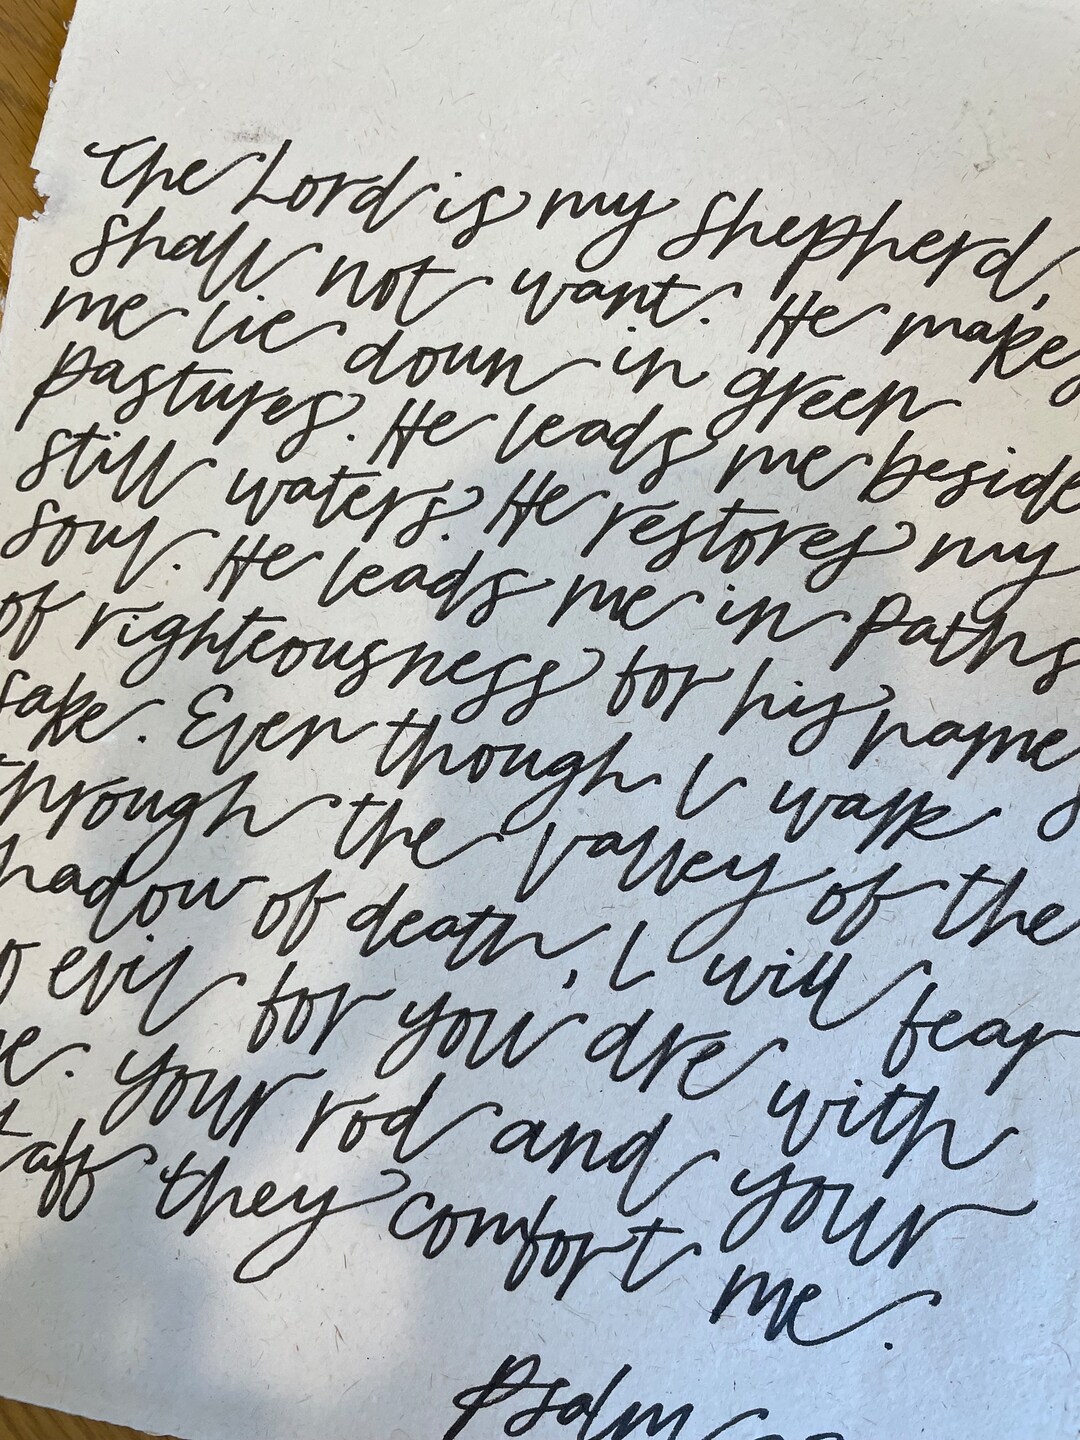 the Lord is my shepherd,
shall not want. He makes
me lie down in green
pastures. He leads me beside
still waters. He restores my
soul. He leads me in paths
of righteousness for his names
sake. Even though I walk
through the valley of the
hadow of death, I will fear
o evil for you are with
e. your rod and your
taff they comfort me.
Psalm